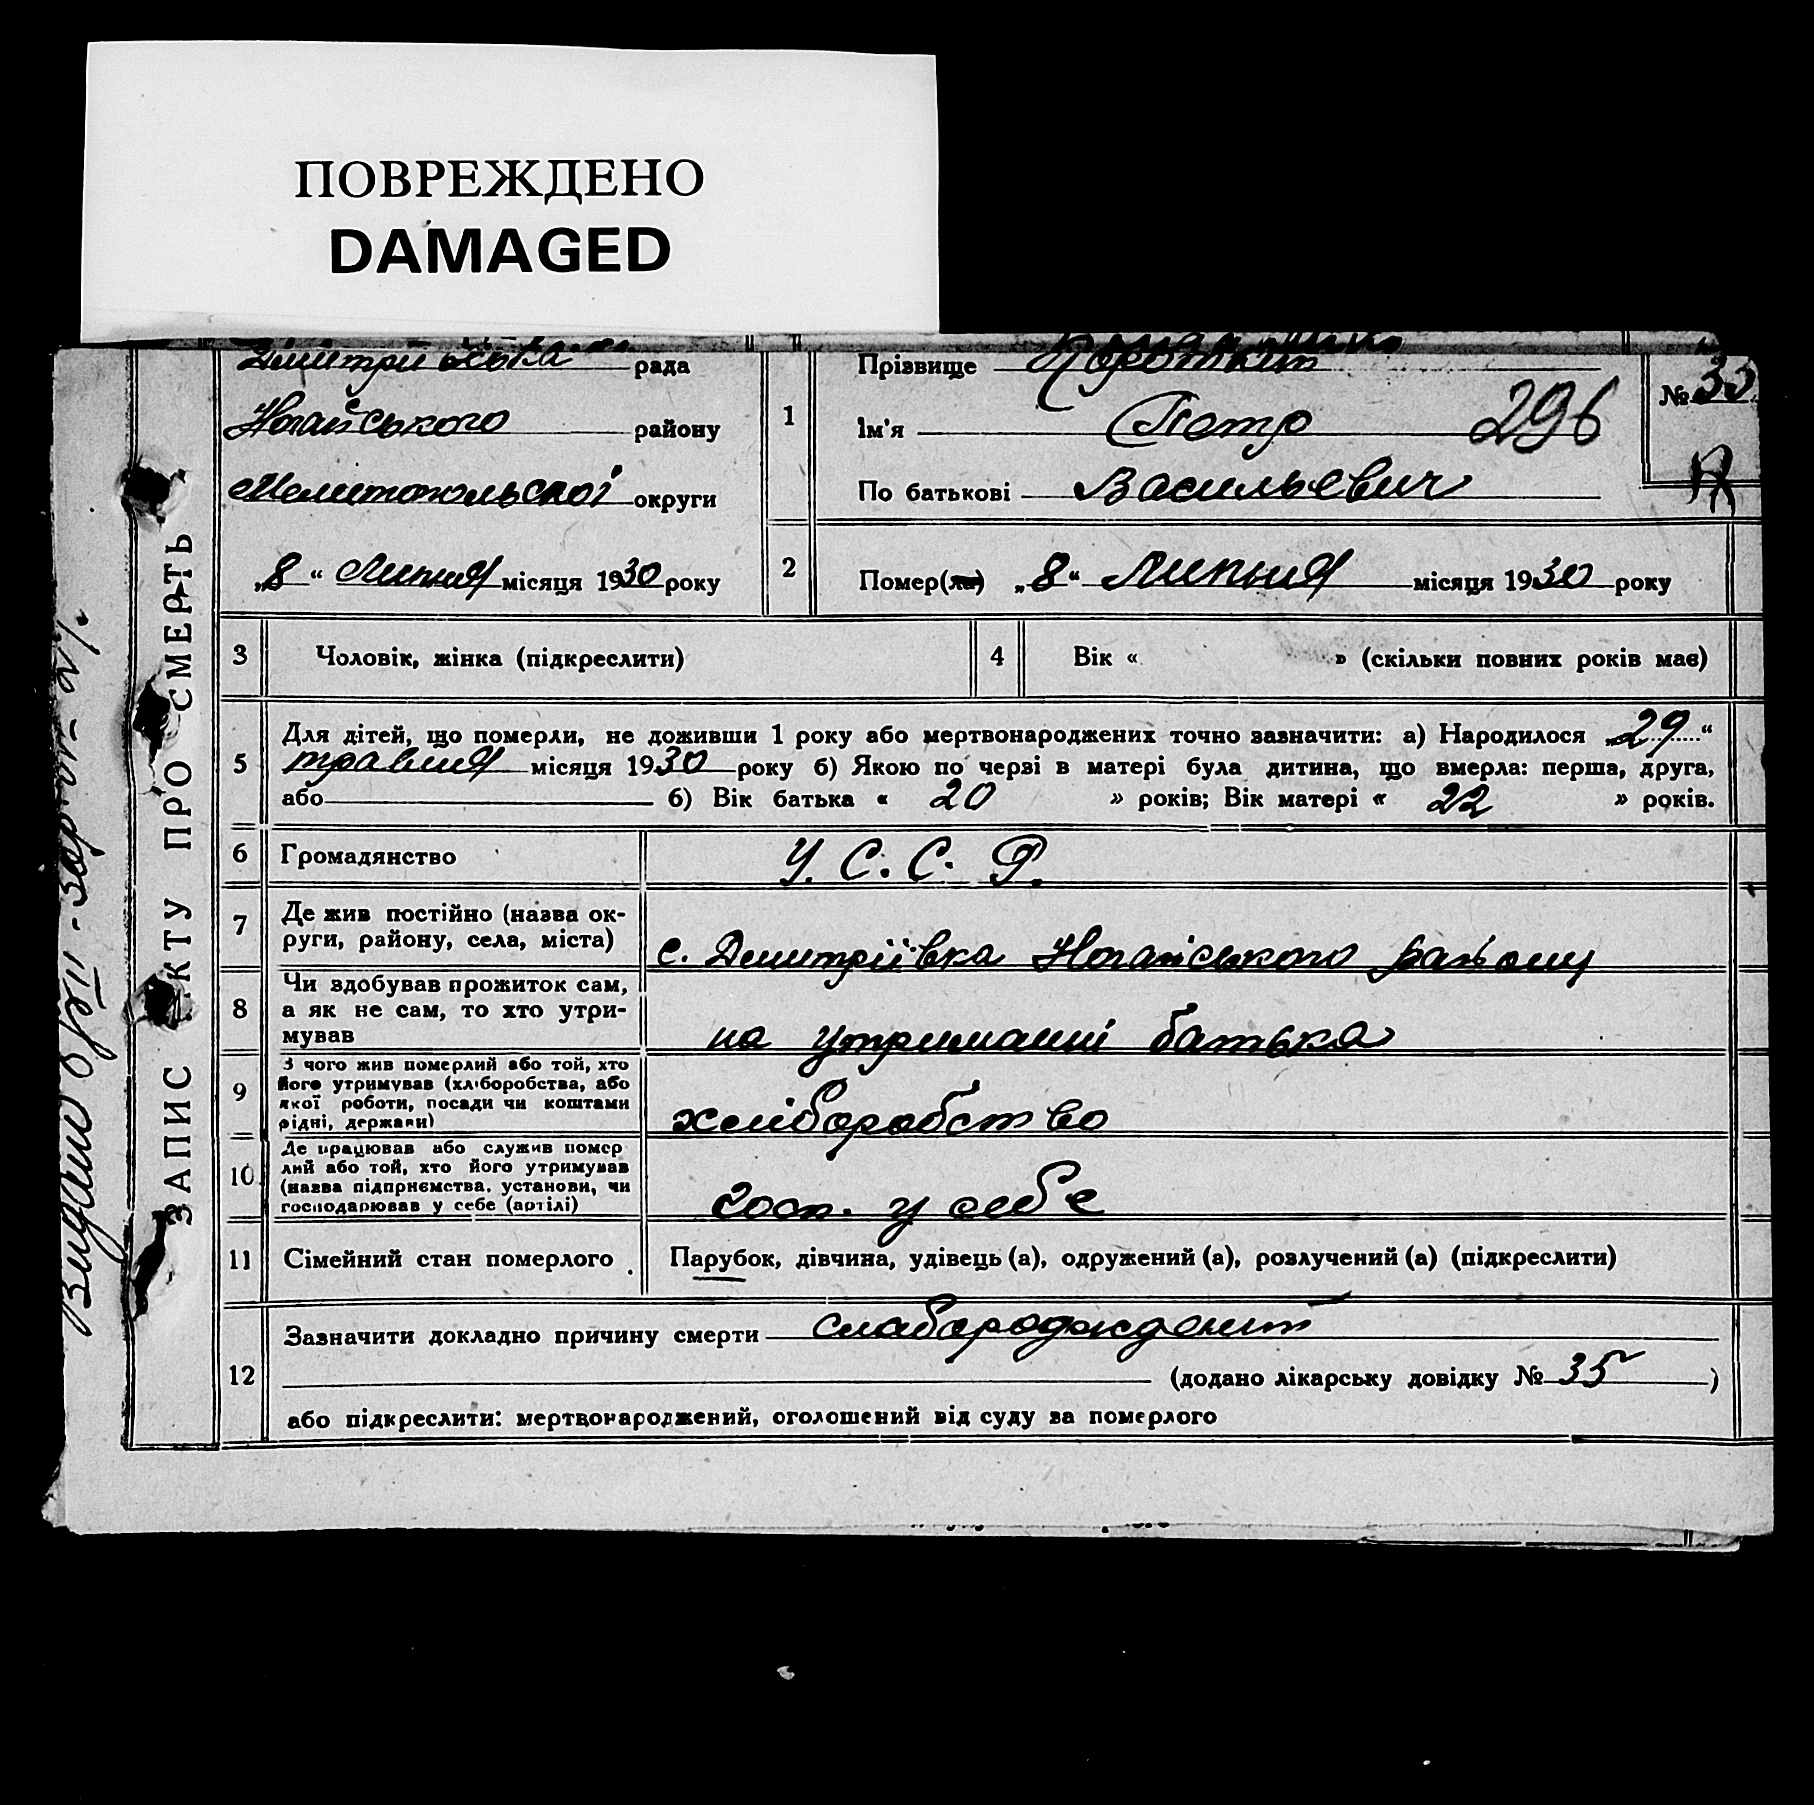 ПОВРЕЖДЕНО
DAMAGED
рада
Прізвище
№ 33
Ногайського району
1
Ім'я Петро 296
Мелитопольської округи
По батькові Васильевич
„8“ Липня місяця 1930 року
2
Помер(ла) „8“ Липня місяця 1930 року
3
Чоловік, жінка (підкреслити)
4
Вік « » (скільки повних років має)
5
Для дітей, що померли, не доживши 1 року або мертвонароджених точно зазначити: а) Народилося „29“
травня місяця 1930 року б) Якою по черзі в матері була дитина, що вмерла: перша, друга,
або б) Вік батька « 20 » років; Вік матері « 22 » років.
6
Громадянство
У. С. С. Р.
7
Де жив постійно (назва ок-
руги, району, села, міста)
с. Дмитріївка Ногайського району
8
Чи здобував прожиток сам,
а як не сам, то хто утри-
мував
на утриманні батька
9
З чого жив померлий або той, хто
його утримував (хліборобства, або
якої роботи, посади чи коштами
рідні, держави)
хліборобство
10
Де працював або служив помер
лий або той, хто його утримував
(назва підприємства, установи, чи
господарював у себе (артілі)
госп. у себе
11
Сімейний стан померлого
Парубок, дівчина, удівець (а), одружений (а), розлучений (а) (підкреслити)
12
Зазначити докладно причину смерти слаборожденит
(додано лікарську довідку № 35 )
або підкреслити: мертвонароджений, оголошений від суду за померлого
ЗАПИС АКТУ ПРО СМЕРТЬ